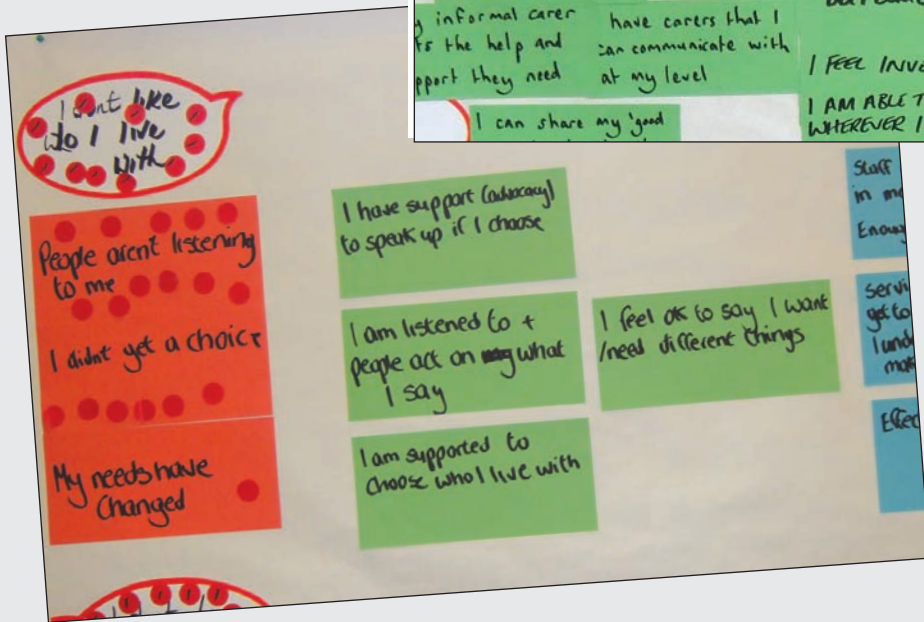 informal carer
the help and
they need
have carers that I
can communicate with
at my level
I FEEL
I AM ABLE
WHEREVER I
I can share my 'good
I dont like
who I live
with
People arent listening
to me
I didnt get a choice
My needs have
Changed
I have support (advocacy)
to speak up if I choose
I am listened to +
people act on what
I say
I am supported to
choose who I live with
I feel ok to say I want
/need different things
Staff
in
get to